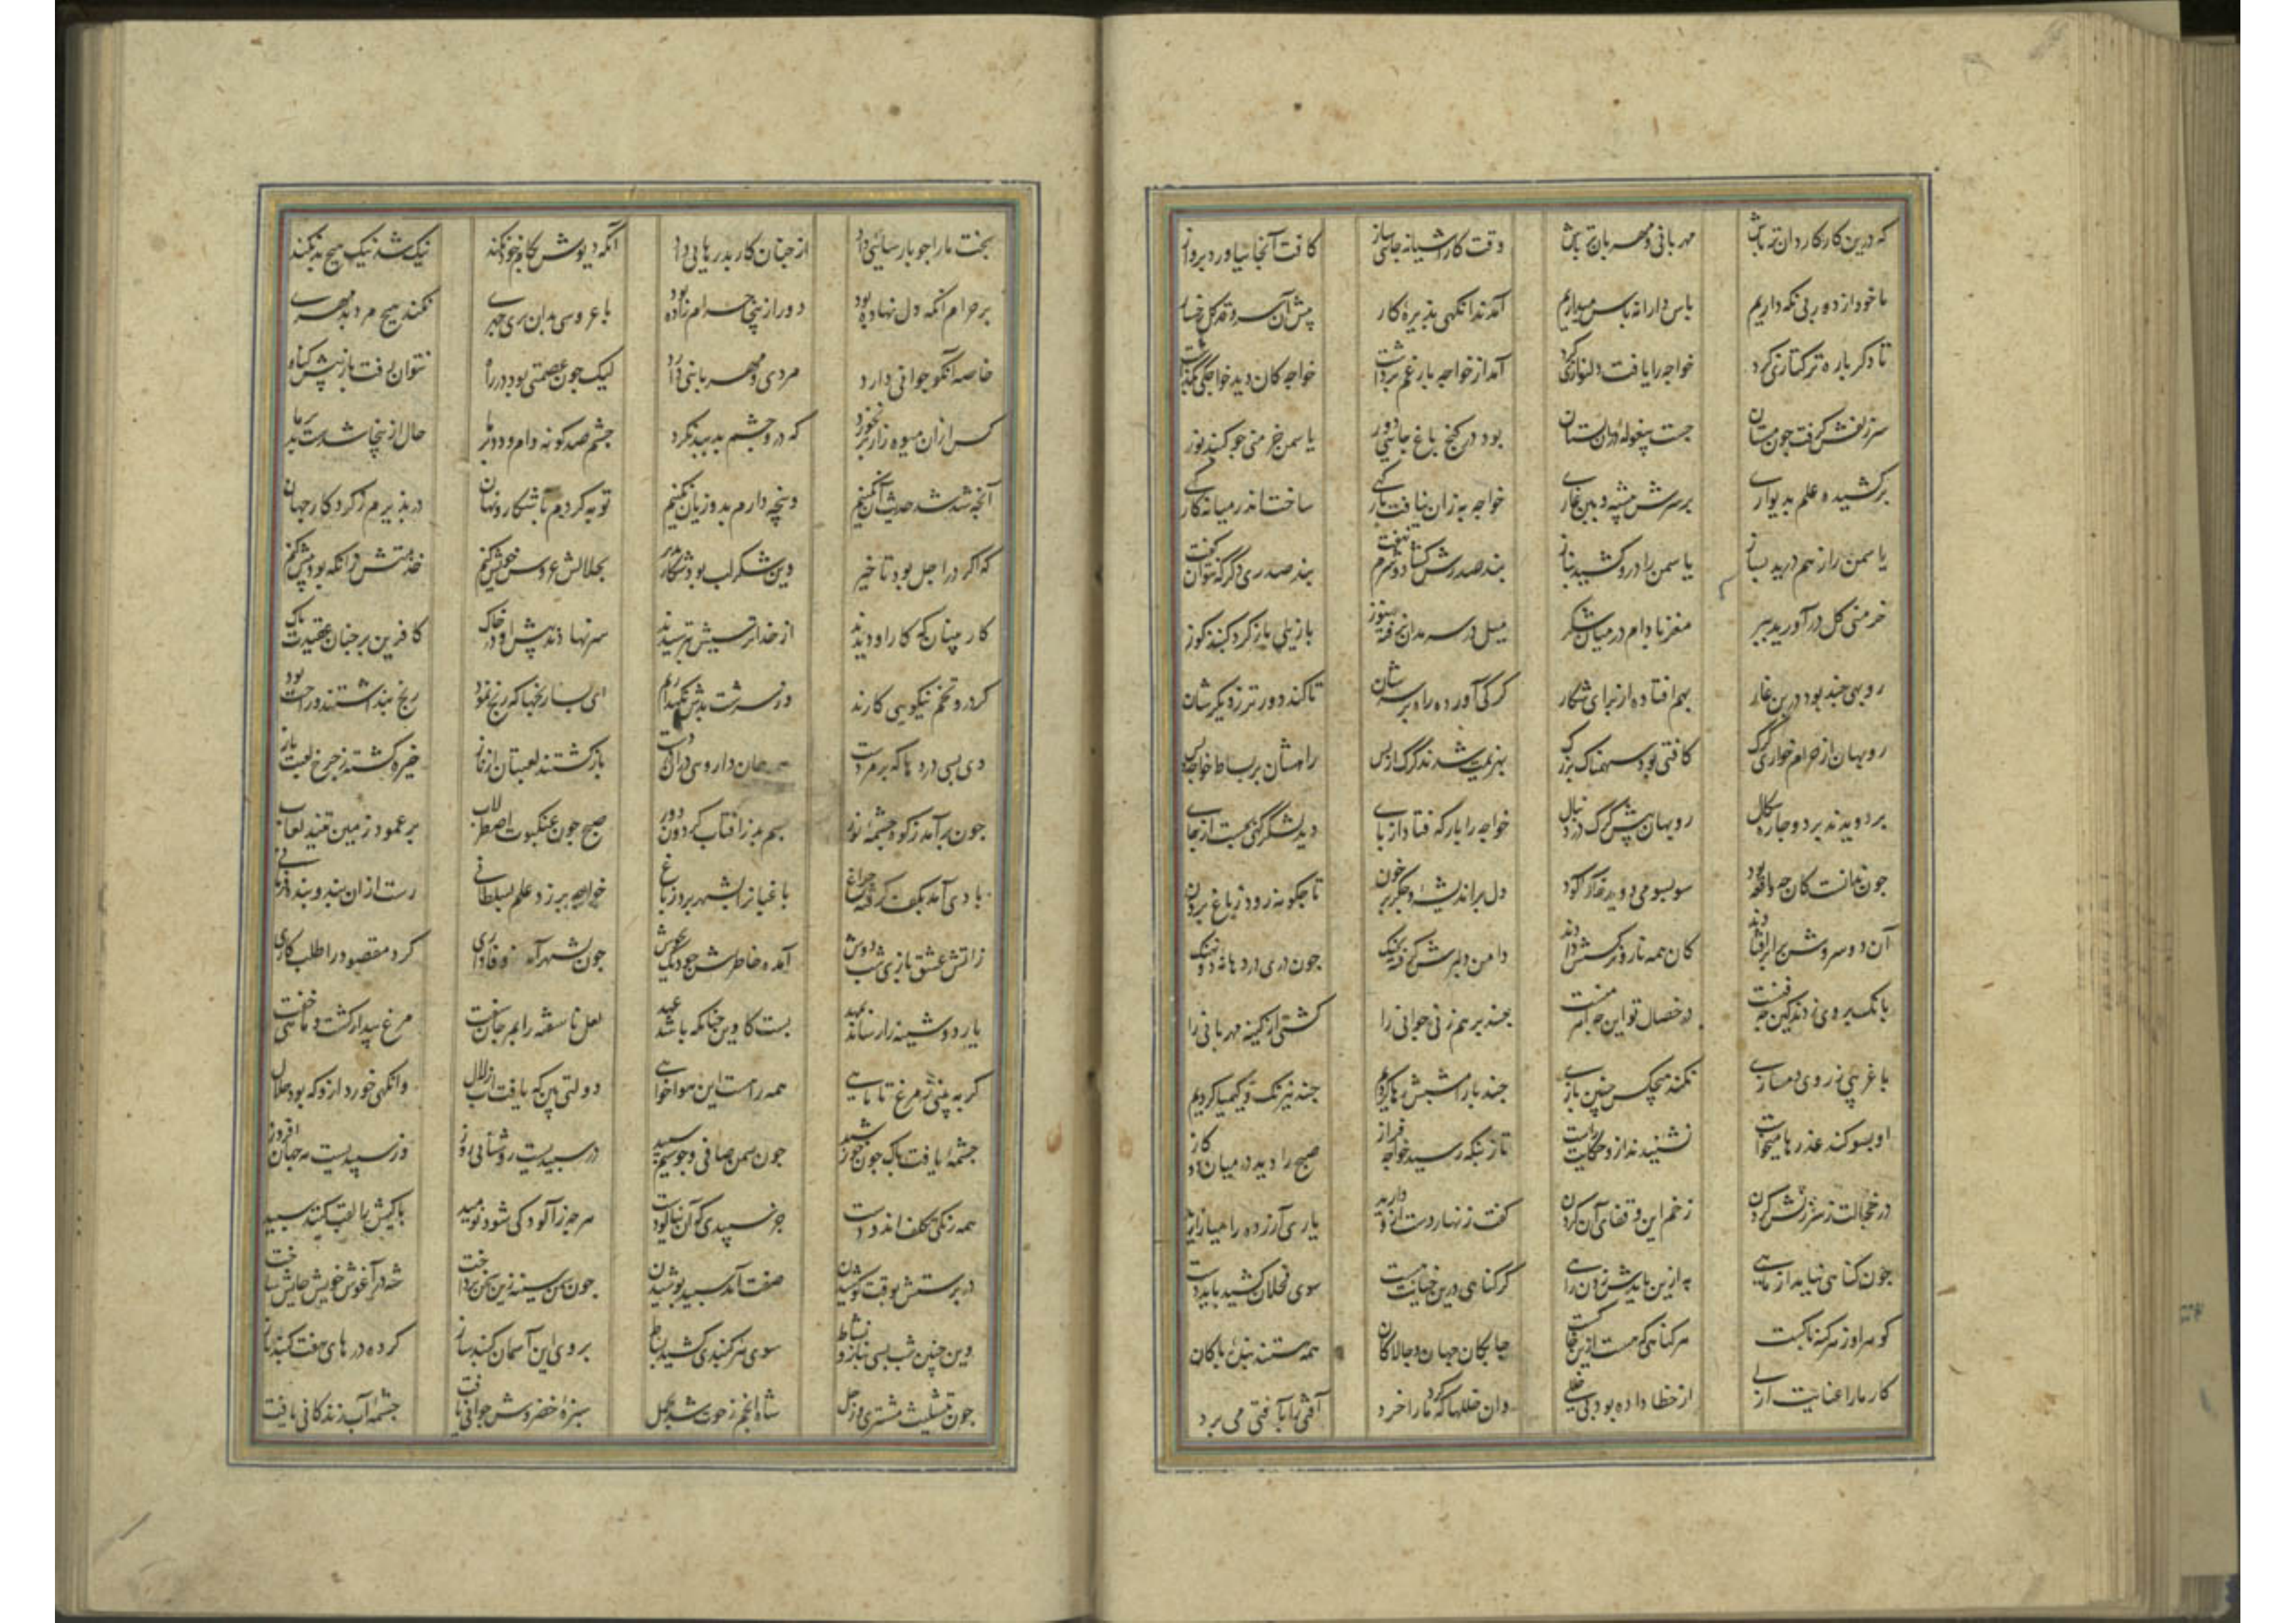 که درین کار کاردان تر باش مهربانی و مهربان تر باش وقت کار آشیانه جائی ساز کافت آنجا نیاورد پرواز
ما خود از دور پی نکه داریم پاس دارانه پاس میداریم آمدند آنکهی پذیره کار پیش آن سرو قد کل رخسار
تا دکر باره ترکتازی کرد خواجه را یافت دلنوازی کرد آمد از خواجه بار غم برداشت خواجه کان دید خواجکی بگذاشت
سر زلفش کرفت چون مستان جست بیغوله در آن بستان بود در کنج باغ جائی دور یاسمن خرمنی جو کنبد نور
برکشیده علم بدیواری بر سرش بیشه و ببن غاری خواجه به زان نیافت بارکهی ساخت اندر میانه کارکهی
یاسمن را ز هم درید بساز یاسمن را درو کشید بناز بند صدرش کشاد و شرم نهفت بند صدری دکر که نتوان کفت
خرمنی کل درآورید ببر مغز بادام در میان شکر میل در سرمه دان نرفته هنوز بازیی باز کرد کنبد کوز
روبهی چند بود در بن غار بهم افتاده از برای شکار کرکی آورده راه بر سرشان تا کند دورتر ز یکدیکرشان
روبهان از حرام خواری کرک کافتی بود سهمناک بزرک بهزیمت شدند کرک از پس راهشان بر بساط خواجه و بس
بردویدند بر دو چاره سکال روبهان پیش کرک در دنبال خواجه را بارکه فتاد از پای دید لشکرکهی بجست از جای
چون ندانست کان چه واقعه بود سوبسو می دوید خاک آلود دل پر اندیشه و جکر پر خون تا چکونه رود ز باغ برون
آن دو سروش برابر افتادند کان همه نار و نرکسش دادند دامن دلبرش کرفته بچنک چون دری در دهانه دو نهنک
بانک بر وی زدند کین چه فنست در خصال تو این چه اهرمنست چند بر هم زنی جوانی را کشتی از کینه مهربانی را
با غریبی ز روی دمسازی نکند هیچکس چنین بازی چند بار امشبش رها کردیم چند نیرنک و کیمیا کردیم
او بسوکند عذرها میخواست نشنیدند ازو حکایت راست تا ز بنکه رسید خواجه فراز صبح را دید در میان دو کاز
در خجالت ز سرزنش کردن زخم این و قفای آن خوردن کفت زنهار دست ازو دارید یاری آزرده را میازارید
چون کناهی نیاید از ماهی به ازین بایدش زدن راهی کر کناهی درین خیانت هست سوی کشید باید دست
کوهر او ز هر کنه پاکست هر کناهی که هست ازین خاکست چابکان جهان و چالاکان همه هستند بنده پاکان
کار ما را عنایت ازلی از خطا داده بود بی خللی وان خللها که ما را خرد کرد آفتی را بآفتی می برد
بخت ما را چو پارسائی داد از چنان کار بد رهایی داد آنکه دیوش بکام خود نکند نیک شد نیک هیچ بد نکند
بر حرام آنکه دل نهاده بود دور ازینجا حرام زاده بود با عروسی بدان پری چهری نکند هیچ مرد بدمهری
خاصه آنکو جوانی دارد مردی و مهربانی دارد لیک چون عصمتی بود در راه نتوان رفت باز پیش کناه
کس ازان میوه زار بر نخورد که درو چشم بد ببد نکرد چشم صد کونه دام و دد بر ما حال ازینجا شدست بد بر ما
آنچه شد شد حدیث آن نکنیم وینچه دارم بدو زیان نکنیم توبه کردیم بآشکار و نهان در پذیرم ز کردکار جهان
که اکر در اجل بود تاخیر وین شکر لب بود شکارپذیر بحلالش عروس خویش کنم خدمتش زانکه بود بیش کنم
کاربینان که کار او دیدند از خداترسیش بترسیدند سر نهادند پیش او در خاک کافرین بر چنان عقیدت پاک
کردرو تخم نیکویی کارند وز سرشت بدش نکهدارند ای بسا رنجها که رنج نمود رنج پنداشتند و راحت بود
وی بسی درد ها که بر مردست همه جان داروی دران دردست بازکشتند لعبتان ز نماز خیره کشتند ز چرخ لعبت باز
چون برآمد ز کوه چشمه نور بسم بر ز آفتاب کردون دور صبح چون عنکبوت اصطرلاب بر عمود زمین تنید لعاب
بادی آمد بکف کرفته چراغ باغبانرا بشهر برد ز باغ خواجه برزد علم بسلطانی رست ازان بند و بنده فرمانی
ز آتش عشق بازی شب دوش آمده خاطرش چو دیک بجوش چون بشهر آمد از وفاداری کرد مقصود را طلب کاری
یار دوشینه را رساند بمهد بست کاوین چنانکه باشد عهد لعل ناسفته را بمرجان سفت مرغ بیدار کشت و ماهی خفت
کر به بینی ز مرغ تا ماهی همه راست این هواخواهی دولتی بین که یافت آب زلال وانکهی خورد ازو که بود حلال
چشمه ای یافت پاک چون خورشید چون سمن صافی و چو سیم سپید در سپیدیست روشنایی روز وز سپیدیست مه جهان افروز
همه رنکی تکلف اندودست جز سپیدی که آن نیالودست هرچه ز آلودکی شود نومید پاکیش را لقب کنند سپید
در پرستش بوقت کوشیدن صفت آمد سپید پوشیدن چون سمن سینه زین سخن پرداخت شه در آغوش خویش جایش ساخت
وین چنین شب بسی بناز و نشاط سوی هر کنبدی کشید بساط بر وی این آسمان کنبد ساز کرده در های هفت کنبد باز
چون بتثلیث مشتری و زحل شاه انجم ز حوت شد بحمل سبزه خضروش جوانی یافت چشمه آب زندکانی یافت